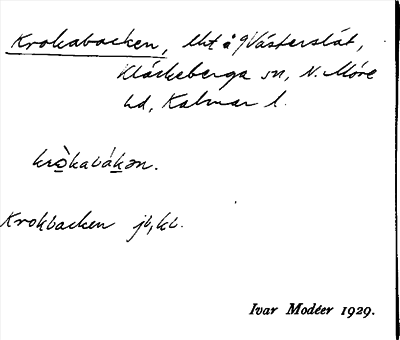 Krokabacken, lht å Västerslät,
Kläckeberga sn, N. Möre
hd, Kalmar l.
kròkabákən.
Krokbacken jb, kb.
Ivar Modéer 1929.